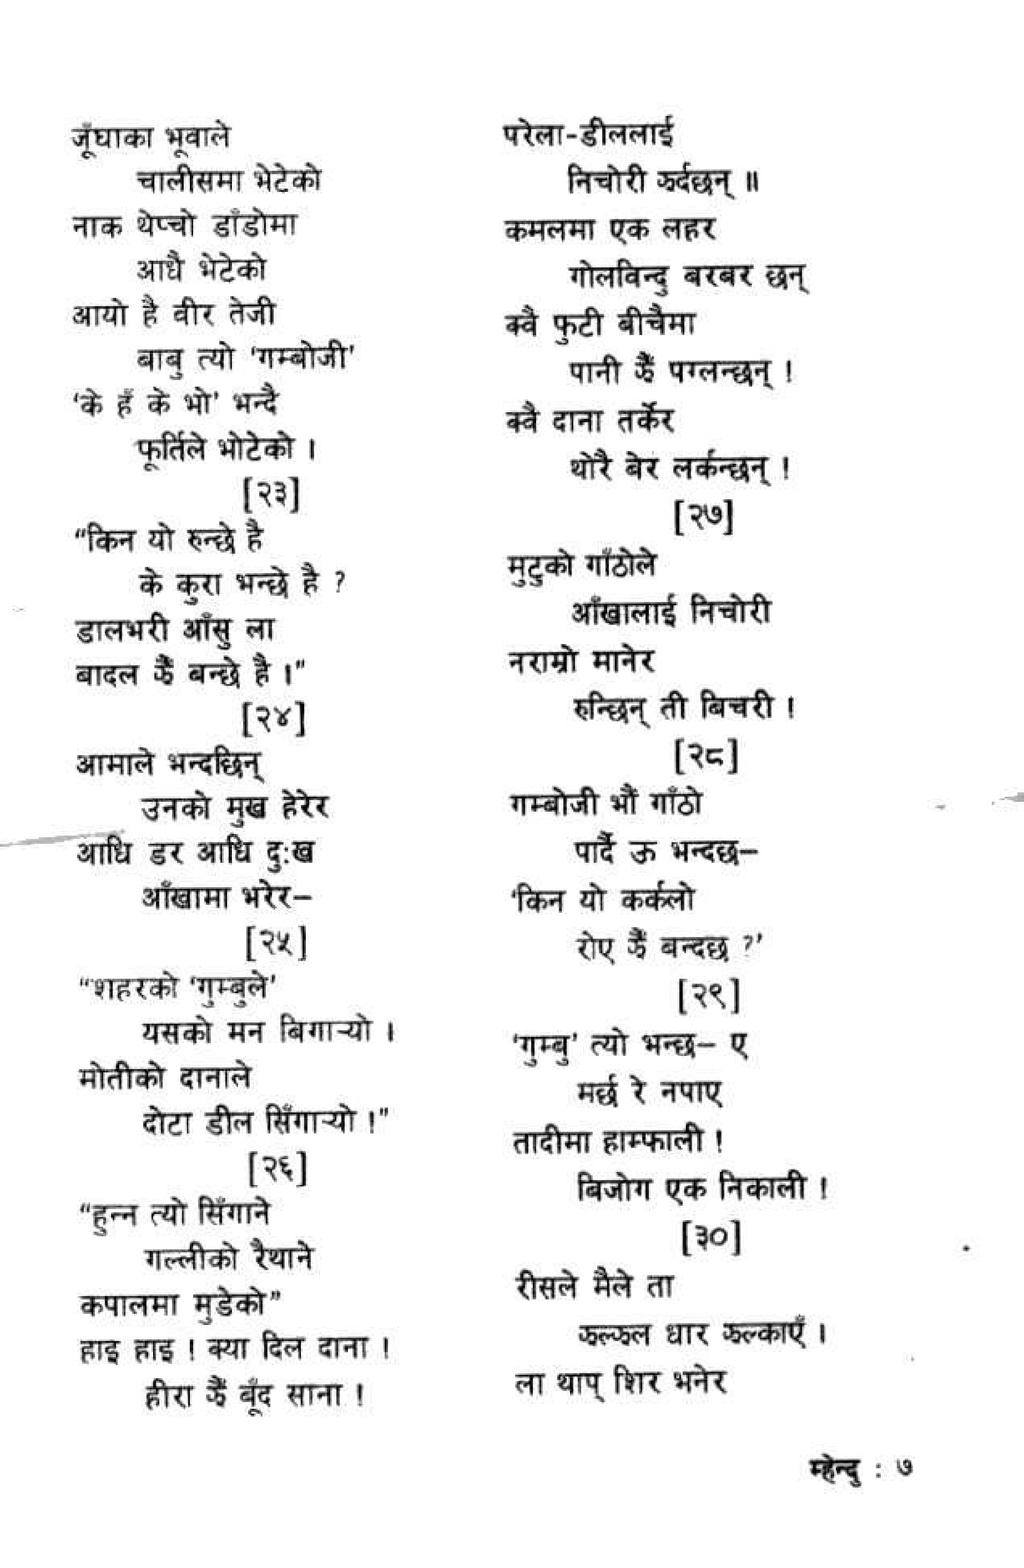 जूँघाका भूवाले
चालीसमा भेटेको
नाक थेप्चो डाँडोमा
आधै भेटेको
आयो है वीर तेजी
बाबु त्यो ‘गम्बोजी’
‘के हँ के भो’ भन्दै
फूर्तिले भोटेको ।
[२३]
“किन यो रुन्छे है
के कुरा भन्छे है ?
डालभरी आँसु ला
बादल झैं बन्छे है ।”
[२४]
आमाले भन्दछिन्
उनको मुख हेरेर
आधि डर आधि दुःख
आँखामा भरेर–
[२५]
“शहरको ‘गुम्बुले’
यसको मन बिगार्‍यो ।
मोतीको दानाले
दोटा डील सिँगार्‍यो !”
[२६]
“हुन्न त्यो सिँगाने
गल्लीको रैथाने
कपालमा मुडेको”
हाइ हाइ ! क्या दिल दाना !
हीरा झैं बूँद साना !
परेला-डीललाई
निचोरी झर्दछन् ॥
कमलमा एक लहर
गोलविन्दु बरबर छन्
क्वै फुटी बीचैमा
पानी झैं पग्लन्छन् !
क्वै दाना तर्केर
थोरै बेर लर्कन्छन् !
[२७]
मुटुको गाँठोले
आँखालाई निचोरी
नराम्रो मानेर
रुन्छिन् ती बिचरी !
[२८]
गम्बोजी भौं गाँठो
पार्दै ऊ भन्दछ–
‘किन यो कर्कलो
रोए झैं बन्दछ ?’
[२९]
‘गुम्बु’ त्यो भन्छ– ए
मर्छ रे नपाए
तादीमा हाम्फाली !
बिजोग एक निकाली !
[३०]
रीसले मैले ता
झल्झल धार झल्काएँ ।
ला थाप् शिर भनेर
म्हेन्दु : ७